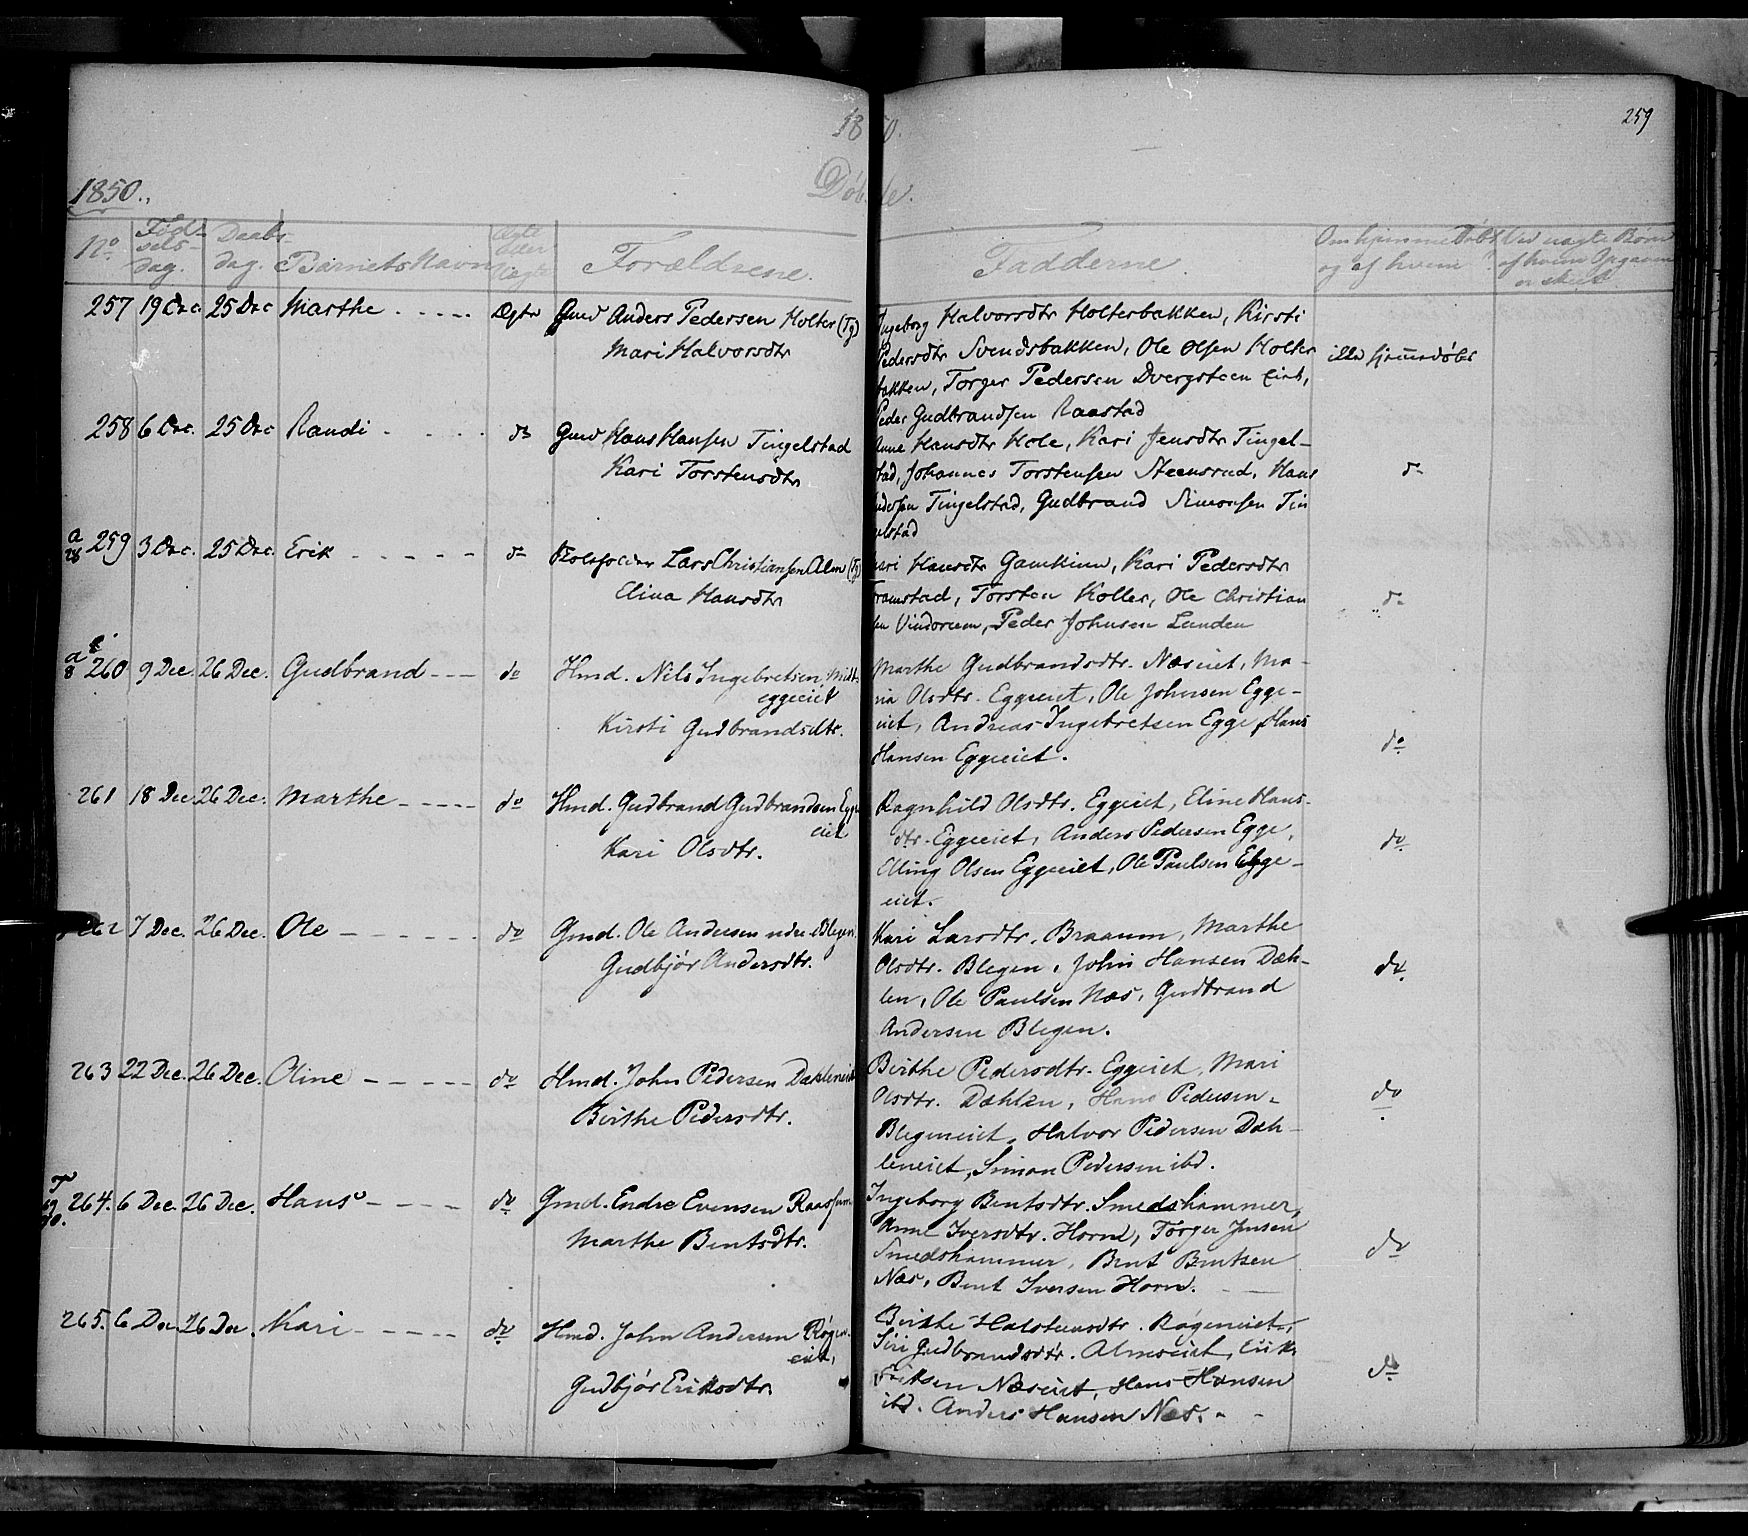 1850.
259
1850.,
Døbte.
No. Fødselsdag. Daabsdag. Barnets Navn Ægte eller Uægte Forældrene. Fadderne. Om hjemmedøbt og af hvem Ved uægte Børn af hvem Opgaven er skeet
257 19 Dec. 25 Dec Marthe . . . . . Ægte Gmd Anders Pedersen Holter (Tg)
Mari Halvorsdtr
Ingeborg Halvorsdtr Holterbakken, Kirsti
Pedersdtr Svendsbakken, Ole Olsen Holter
bakken, Torger Pedersen Dvergsteen
Peder Gudbrandsen Raastad
ikke hjemmedøbt
258 6 Dec. 25 Dec Randi . . . . . do Gmd Hans Hansen Tingelstad
Kari Torstensdtr
Anne Hansdtr Hole, Kari Jensdtr Tingel-
stad, Johannes Torstensen Steensrud, Hans
Andersen Tingelstad, Gudbrand Simonsen Tin
gelstad
do
a
28 259 3 Dec. 25 Dec. Erik - - - - - do Lars Christiansen Alm (Tg)
Elina Hansdtr
Kari Hansdtr Gamkinn, Kari Pedersdtr
Framstad, Torsten Koller, Ole Christian
sen Vindorum, Peder Johnsen Lunden
do
a
8 260 9 Dec. 26 Dec. Gudbrand - - - do Hmd. Nils Ingebretsen Midt-
eggeeiet
Kirsti Gudbrandsdtr.
Marthe Gudbrandsdtr. Næseiet, Ma-
ria Olsdtr. Eggeeiet, Ole Johnsen Egge-
eiet, Andreas Ingebretsen Egge, Hans
Hansen Eggeeiet.
do
261 18 Dec 26 Dec. Marthe - - - - - do Hmd. Gudbrand Gudbrandsen Egge
eiet
Kari Olsdtr.
Ragnhild Olsdtr. Eggeiet, Eline Hans-
dtr. Eggeeiet, Anders Pedersen Egge,
Elling Olsen Eggeeiet, Ole Paulsen Egge-
eiet.
do
262 7 Dec. 26 Dec. Ole - - - - - - do Gmd. Ole Andersen ndre Blegen.
Gudbjør Andersdtr.
Kari Larsdtr. Braaum, Marthe
Olsdtr. Blegen, John Hansen Dæh-
len, Ole Paulsen Næs, Gudbrand
Andersen Blegen.
do.
263 22 Dec. 26 Dec. Oline - - - - - do Hmd. John Pedersen Dæhleneiet
Birthe Pedersdtr.
Birthe Pedersdtr. Eggeiet, Mari
Olsdtr. Dæhlen, Hans Pedersen
Blegeneiet, Halvor Pedersen Dæh-
leneiet, Simon Pedersen ibd.
do
264. 6 Dec. 26 Dec. Hans - - - - do Gmd. Endre Evensen Raassum
Marthe Bentsdtr.
Ingeborg Bentsdtr. Smedshammer,
Anne Iversdtr. Horne, Torger Jensen
Smedshammer, Bent Bentsen
Næs, Bent Iversen Horn.
do
265. 6 Dec 26 Dec. Kari - - - - - do Hmd. John Andersen Røgen-
eiet,
Gudbjør Eriksdtr.
Birthe Halstensdtr. Røgeneiet,
Siri Gudbrandsdtr. Almseiet, Erik
Eriksen Næseiet, Hans Hansen
ibd. Anders Hansen Næs. - -
do